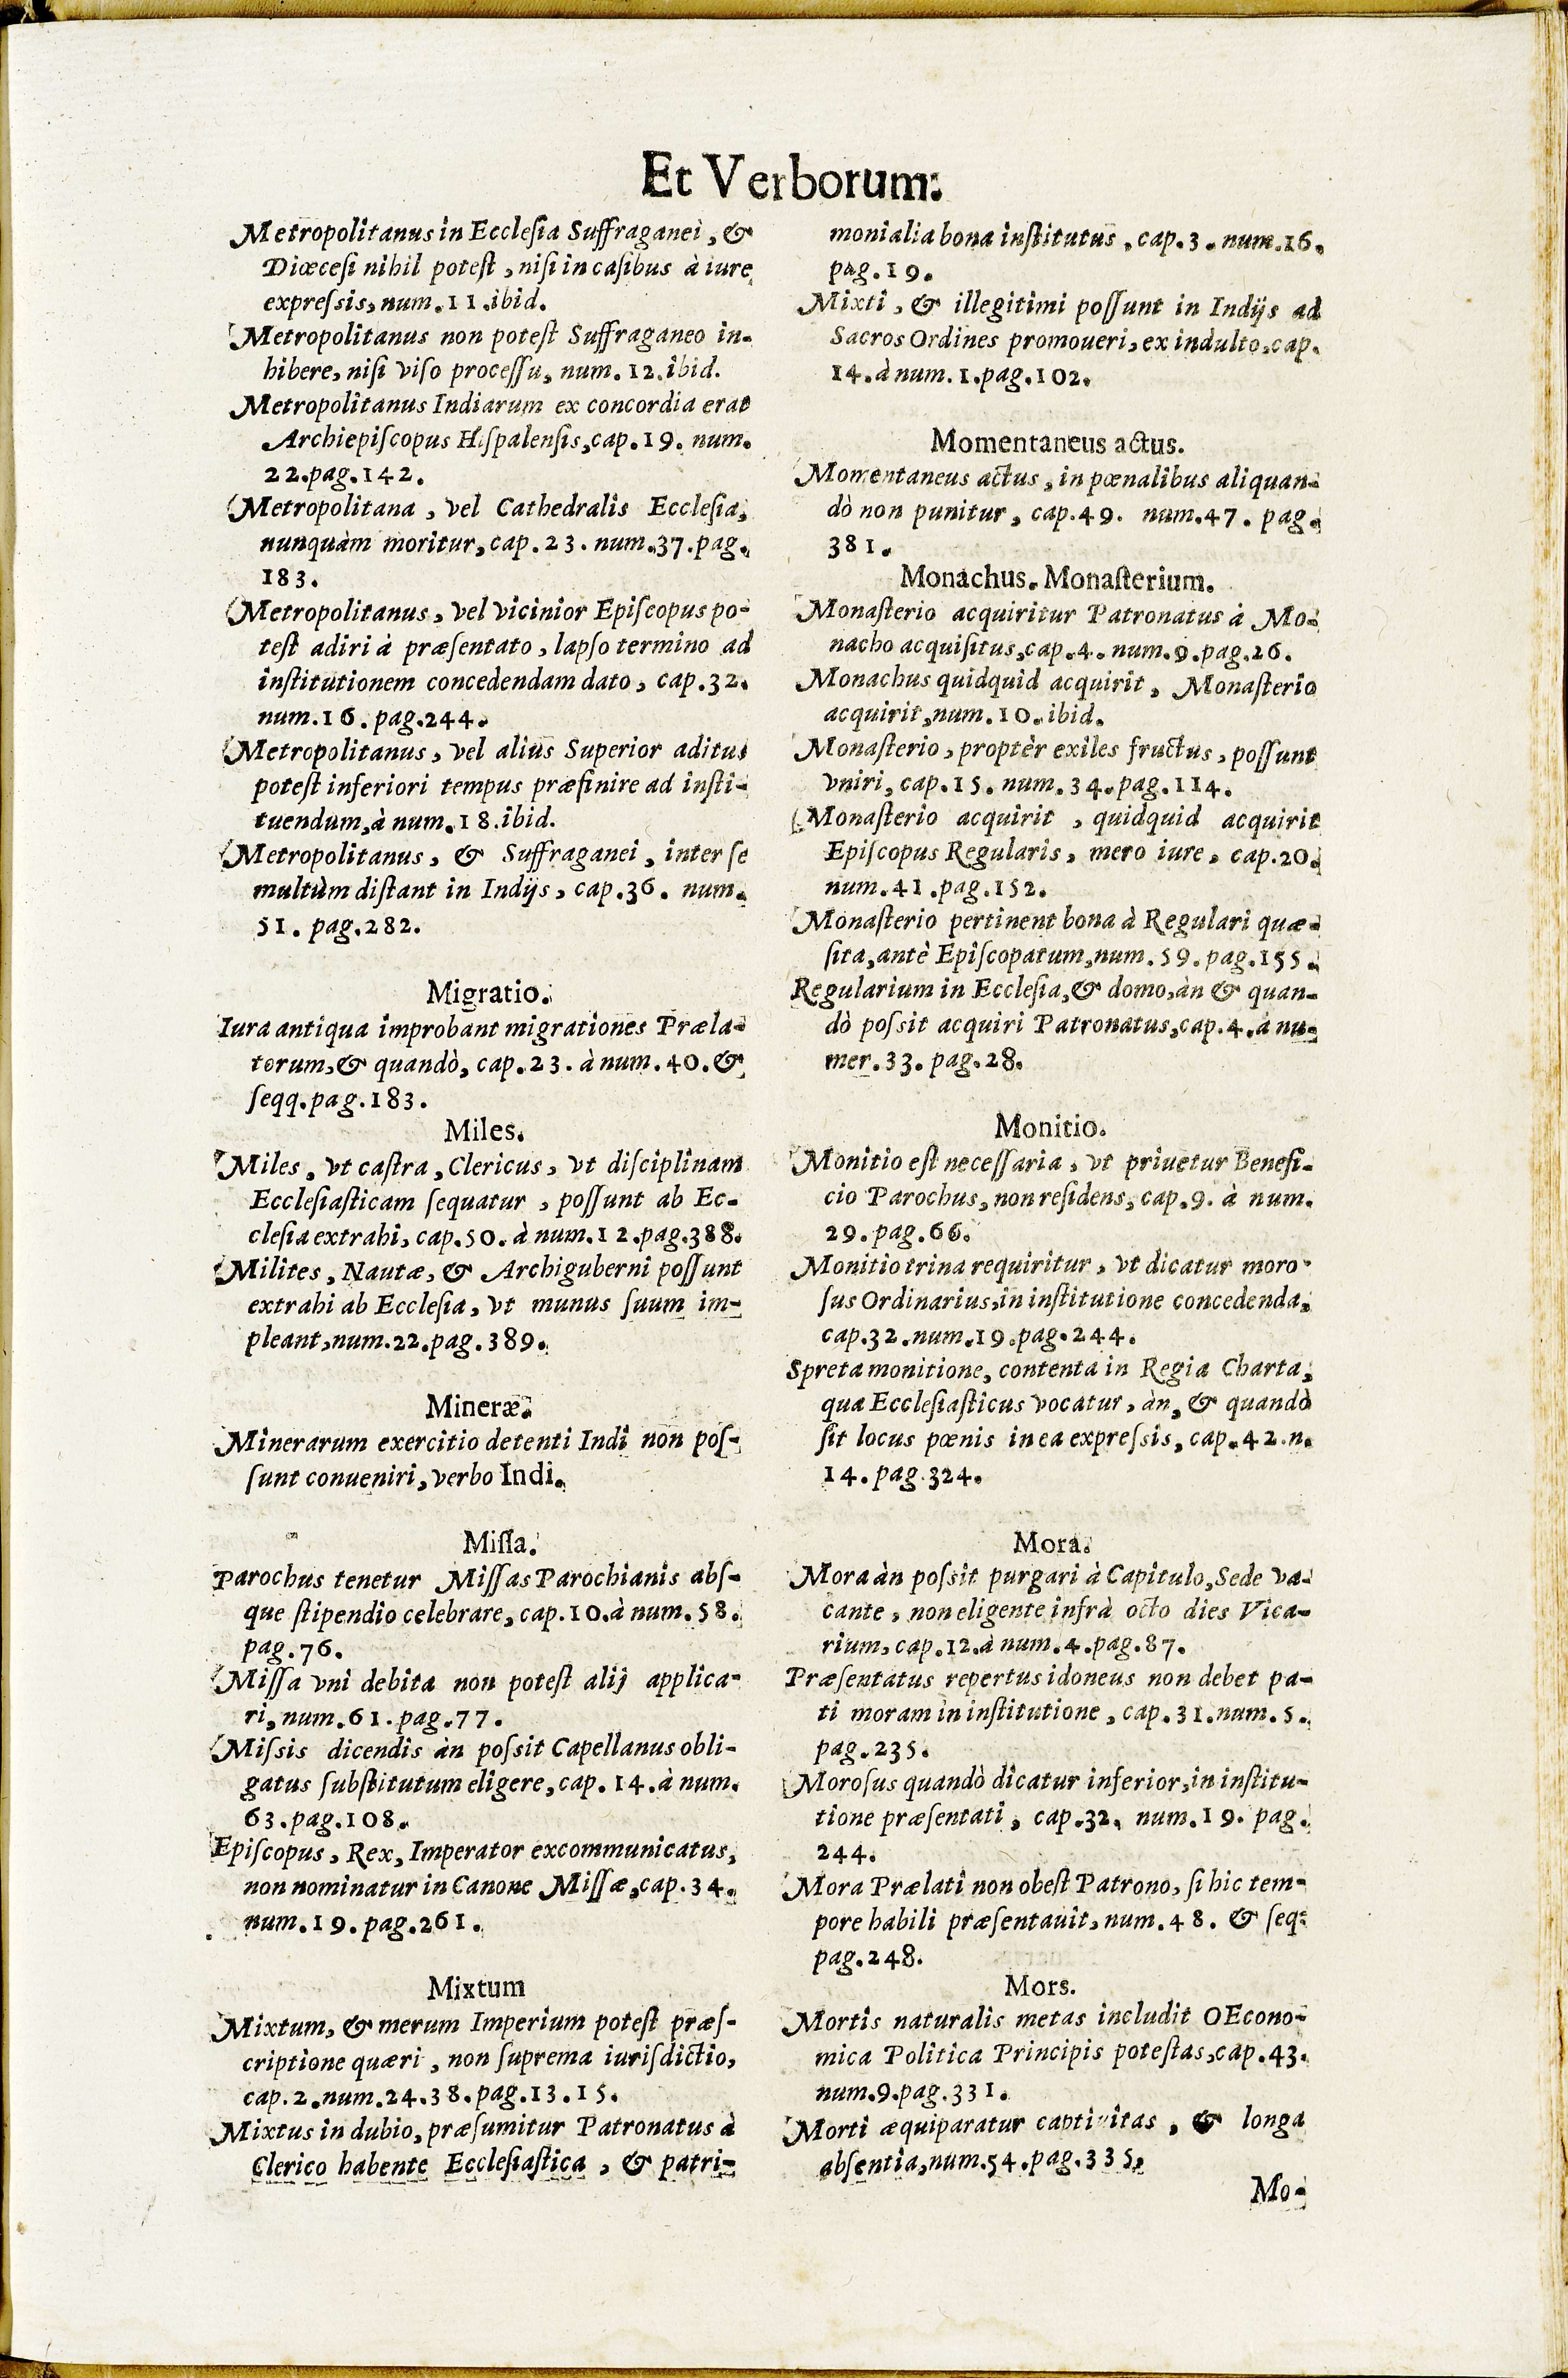 Et Verborum.
Metropolitanus in Eccleſia Suffraganei, &
Diœceſi nihil poteſt, niſi in caſibus à iure
expreſsis, num. 11. ibid.
Metropolitanus non poteſt Suffraganeo in-
hibere, niſi viſo proceſſu, num. 12. ibid.
Metropolitanus Indiarum ex concordia erat
Archiepiſcopus Hiſpalenſis, cap. 19. num.
22. pag. 142.
Metropolitana, vel Cathedralis Eccleſia,
nunquàm moritur, cap. 23. num. 37. pag.
183.
Metropolitanus, vel vicinior Epiſcopus po-
teſt adiri à præſentato, lapſo termino ad
inſtitutionem concedendam dato, cap. 32.
num. 16. pag. 244.
Metropolitanus, vel alius Superior aditus
poteſt inferiori tempus præfinire ad inſti-
tuendum, à num. 18. ibid.
Metropolitanus, & Suffraganei, inter ſe
multùm diſtant in Indijs, cap. 36. num.
51. pag. 282.
Migratio.
Iura antiqua improbant migrationes Præla-
torum, & quandò, cap. 23. à num. 40. &
ſeqq. pag. 183.
Miles.
Miles, vt caſtra, Clericus, vt diſciplinam
Eccleſiaſticam ſequatur, poſſunt ab Ec-
cleſia extrahi, cap. 50. à num. 12. pag. 388.
Milites, Nautæ, & Archiguberni poſſunt
extrahi ab Eccleſia, vt munus ſuum im-
pleant, num. 22. pag. 389.
Mineræ.
Minerarum exercitio detenti Indi non poſ-
ſunt conueniri, verbo Indi.
Miſſa.
Parochus tenetur Miſſas Parochianis abſ-
que ſtipendio celebrare, cap. 10. à num. 58.
pag. 76.
Miſſa vni debita non poteſt alij applica-
ri, num. 61. pag. 77.
Miſsis dicendis àn poſsit Capellanus obli-
gatus ſubſtitutum eligere, cap. 14. à num.
63. pag. 108.
Epiſcopus, Rex, Imperator excommunicatus,
non nominatur in Canone Miſſæ, cap. 34.
num. 19. pag. 261.
Mixtum
Mixtum, & merum Imperium poteſt præſ-
criptione quæri, non ſuprema iuriſdictio,
cap. 2. num. 24. 38. pag. 13. 15.
Mixtus in dubio, præſumitur Patronatus à
Clerico habente Eccleſiaſtica, & patri-
monialia bona inſtitutus, cap. 3. num. 16.
pag. 19.
Mixti, & illegitimi poſſunt in Indijs ad
Sacros Ordines promoueri, ex indulto, cap.
14. à num. 1. pag. 102.
Momentaneus actus.
Momentaneus actus, in pœnalibus aliquan-
dò non punitur, cap. 49. num. 47. pag.
381.
Monachus. Monaſterium.
Monaſterio acquiritur Patronatus à Mo-
nacho acquiſitus, cap. 4. num. 9. pag. 26.
Monachus quidquid acquirit, Monaſterio
acquirit, num. 10. ibid.
Monaſterio, proptèr exiles fructus, poſſunt
vniri, cap. 15. num. 34. pag. 114.
Monaſterio acquirit, quidquid acquirit
Epiſcopus Regularis, mero iure, cap. 20.
num. 41. pag. 152.
Monaſterio pertinent bona à Regulari quæ-
ſita, antè Epiſcopatum, num. 59. pag. 155.
Regularium in Eccleſia, & domo, àn & quan-
dò poſsit acquiri Patronatus, cap. 4. à nu-
mer. 33. pag. 28.
Monitio.
Monitio eſt neceſſaria, vt priuetur Benefi-
cio Parochus, non reſidens, cap. 9. à num.
29. pag. 66.
Monitio trina requiritur, vt dicatur moro-
ſus Ordinarius, in inſtitutione concedenda,
cap. 32. num. 19. pag. 244.
Spreta monitione, contenta in Regia Charta,
qua Eccleſiaſticus vocatur, àn, & quandò
ſit locus pœnis in ea expreſsis, cap. 42. n.
14. pag. 324.
Mora.
Mora àn poſsit purgari à Capitulo, Sede va-
cante, non eligente infrà octo dies Vica-
rium, cap. 12. à num. 4. pag. 87.
Præſentatus repertus idoneus non debet pa-
ti moram in inſtitutione, cap. 31. num. 5.
pag. 235.
Moroſus quandò dicatur inferior, in inſtitu-
tione præſentati, cap. 32. num. 19. pag.
244.
Mora Prælati non obeſt Patrono, ſi hic tem-
pore habili præſentauit, num. 48. & ſeq.
pag. 248.
Mors.
Mortis naturalis metas includit OEcono-
mica Politica Principis poteſtas, cap. 43.
num. 9. pag. 331.
Morti æquiparatur captiuitas, & longa
abſentia, num. 54. pag. 335.
Mo-